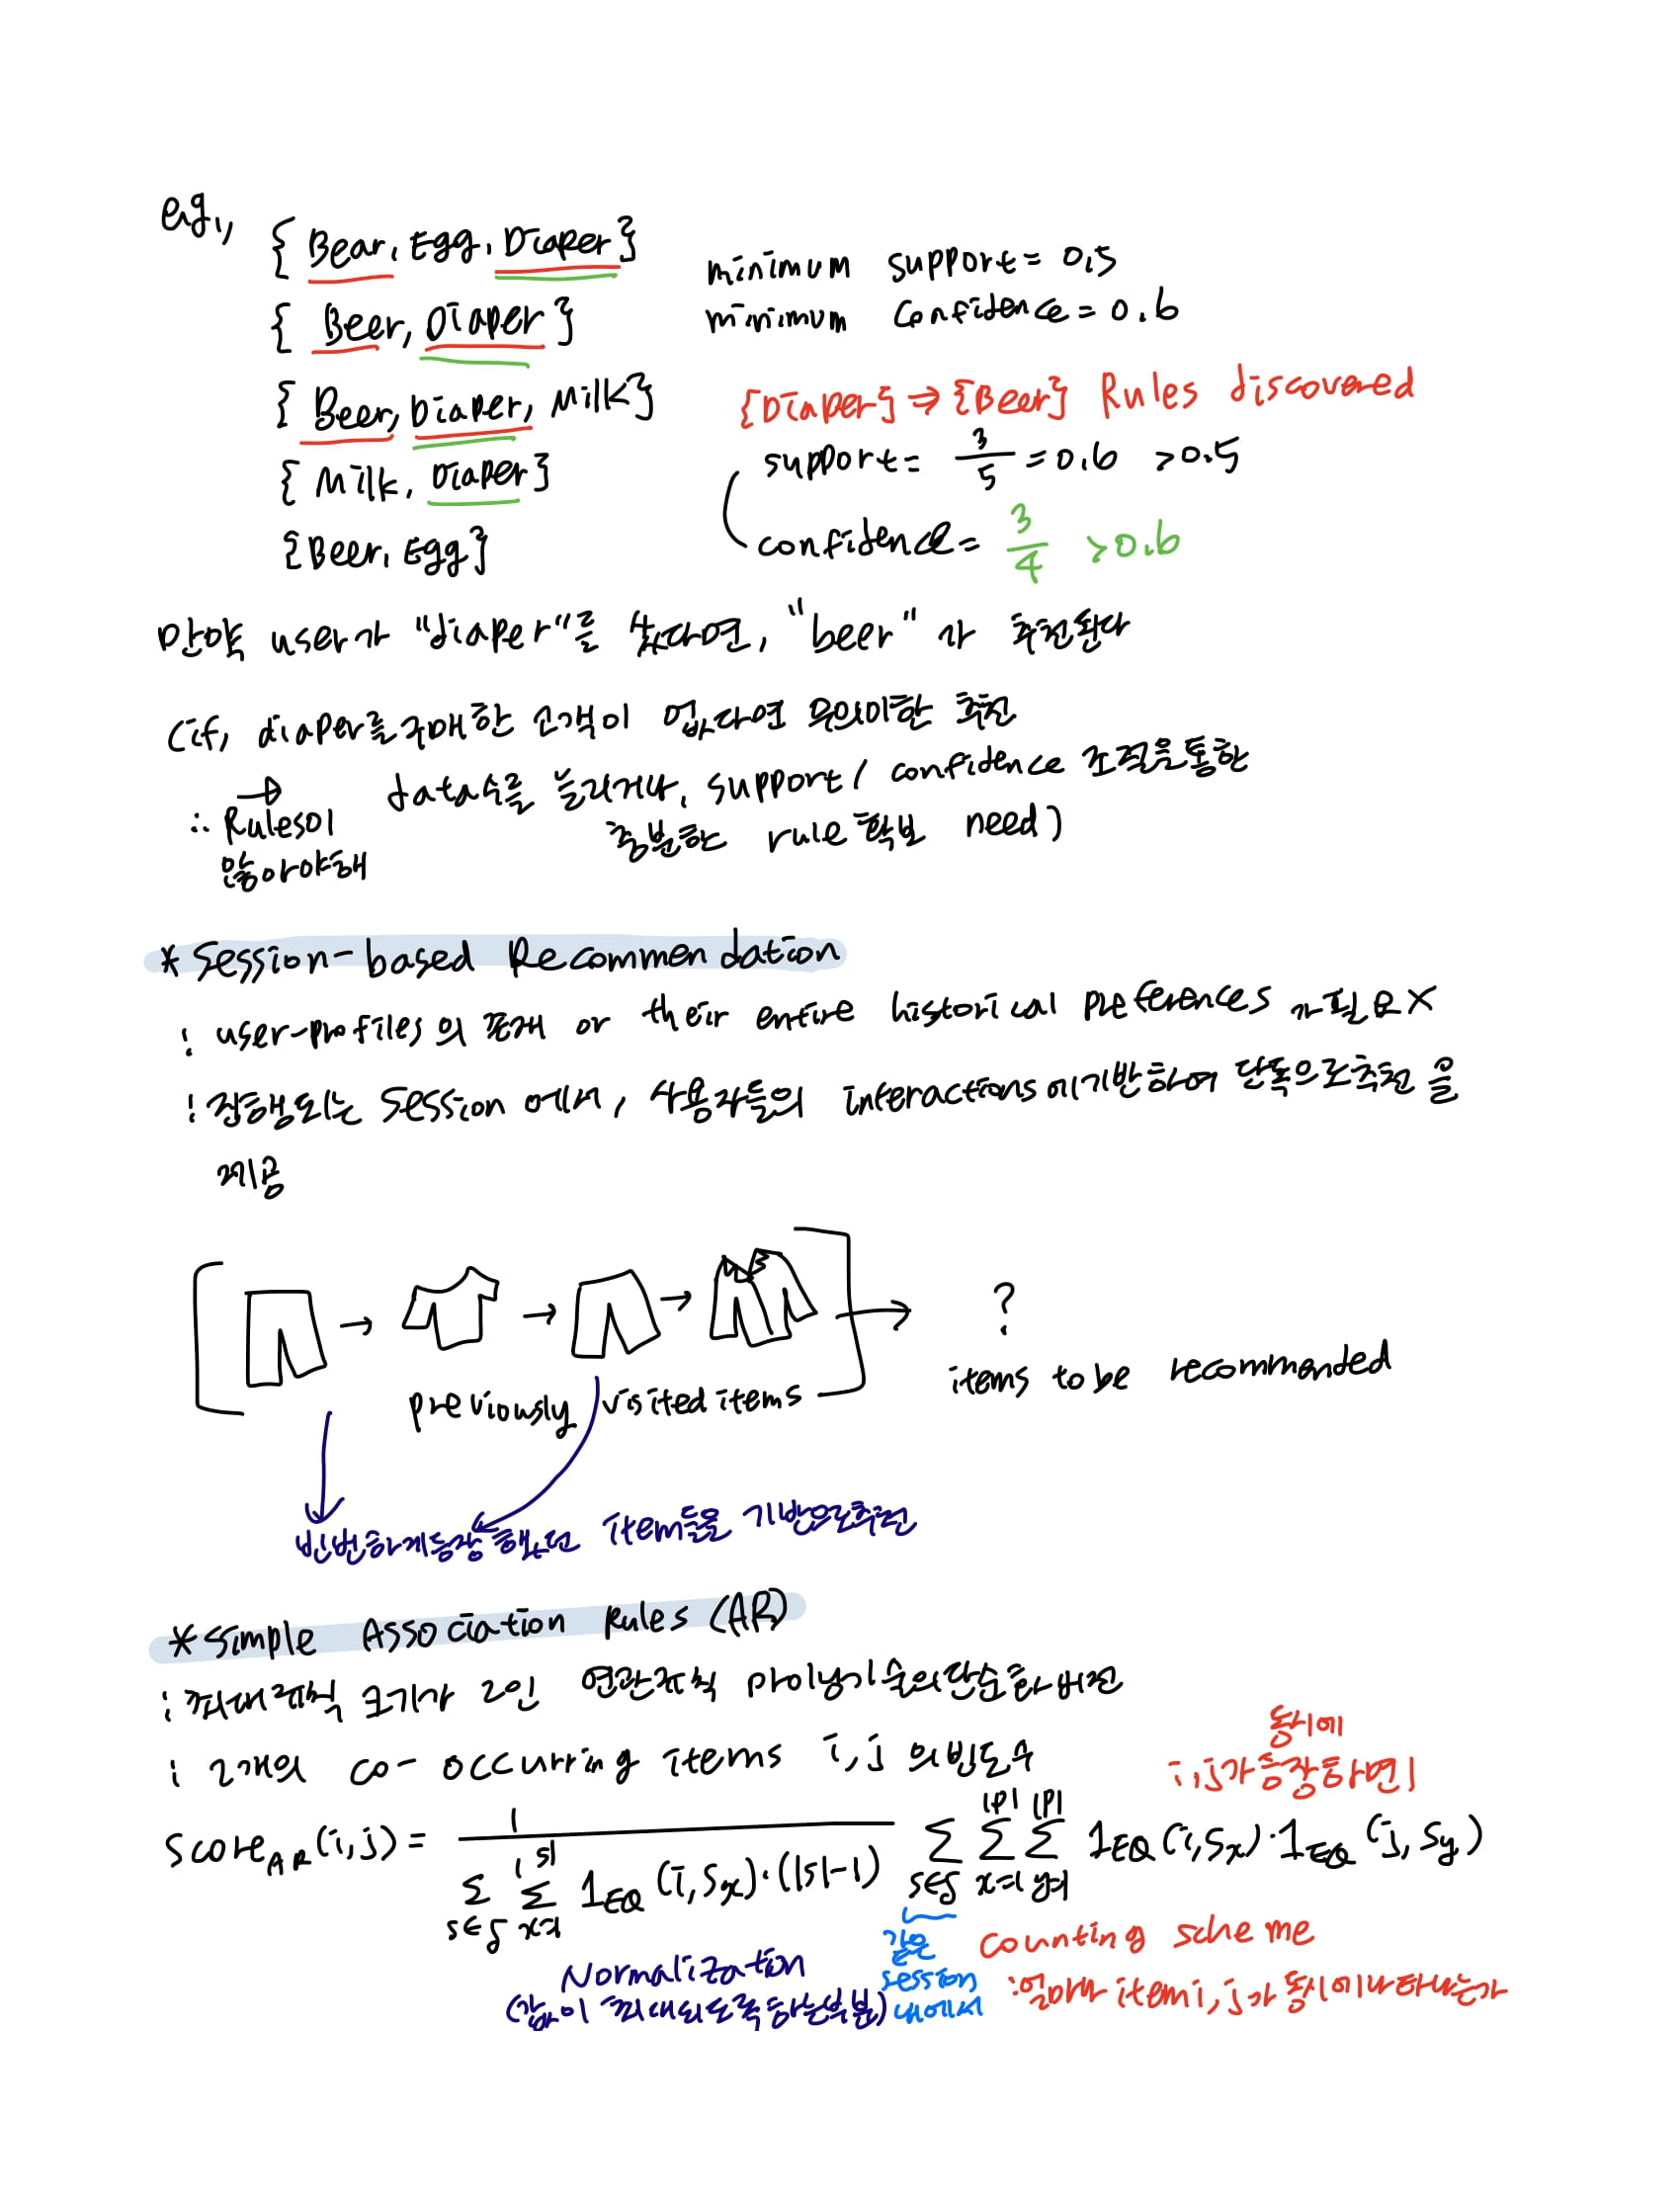 e.g.,
{ Bear, Egg, Diaper }
minimum support = 0.5
{ Beer, Diaper }
minimum confidence = 0.6
{ Beer, Diaper, Milk }
{Diaper} → {Beer} Rules discovered
support = 3/5 = 0.6 > 0.5
{ Milk, Diaper }
confidence = 3/4 > 0.6
{Beer, Egg}
만약 user가 "diaper"를 샀다면, "beer" 가 추천된다
(if, diaper를 구매한 고객이 없다면 무의미한 추천
→ data수를 늘리거나, support / confidence 조절을 통한
충분한 rule 확보 need)
∴ Rules이
많아야해
* Session-based Recommendation
: user-profiles의 존재 or their entire historical preferences 가 필요 X
: 진행되는 session 에서, 사용자들의 interactions에 기반하여 단독으로 추천 을
제공
→ → → → ?
previously visited items
items to be recommended
빈번하게 등장 했던 item들을 기반으로 추천
* Simple Association Rules (AR)
: 최대 규칙 크기가 2인 연관규칙 마이닝 기술의 단순화 버전
: 2개의 co-occurring items i, j 의 빈도수
동시에
i, j가 등장하면 1
Score_AR (i, j) = 1 / (Σ_{s∈S} Σ_{x=1}^{|s|} 1_EQ (i, S_x) · (|s|-1)) Σ_{s∈S} Σ_{x=1}^{|P|} Σ_{y=1}^{|P|} 1_EQ (i, S_x) · 1_EQ (j, S_y)
Normalization
(값이 최대 되도록 하는 부분)
같은
session
내에서
counting scheme
: 얼마나 item i, j가 동시에 나타나는가